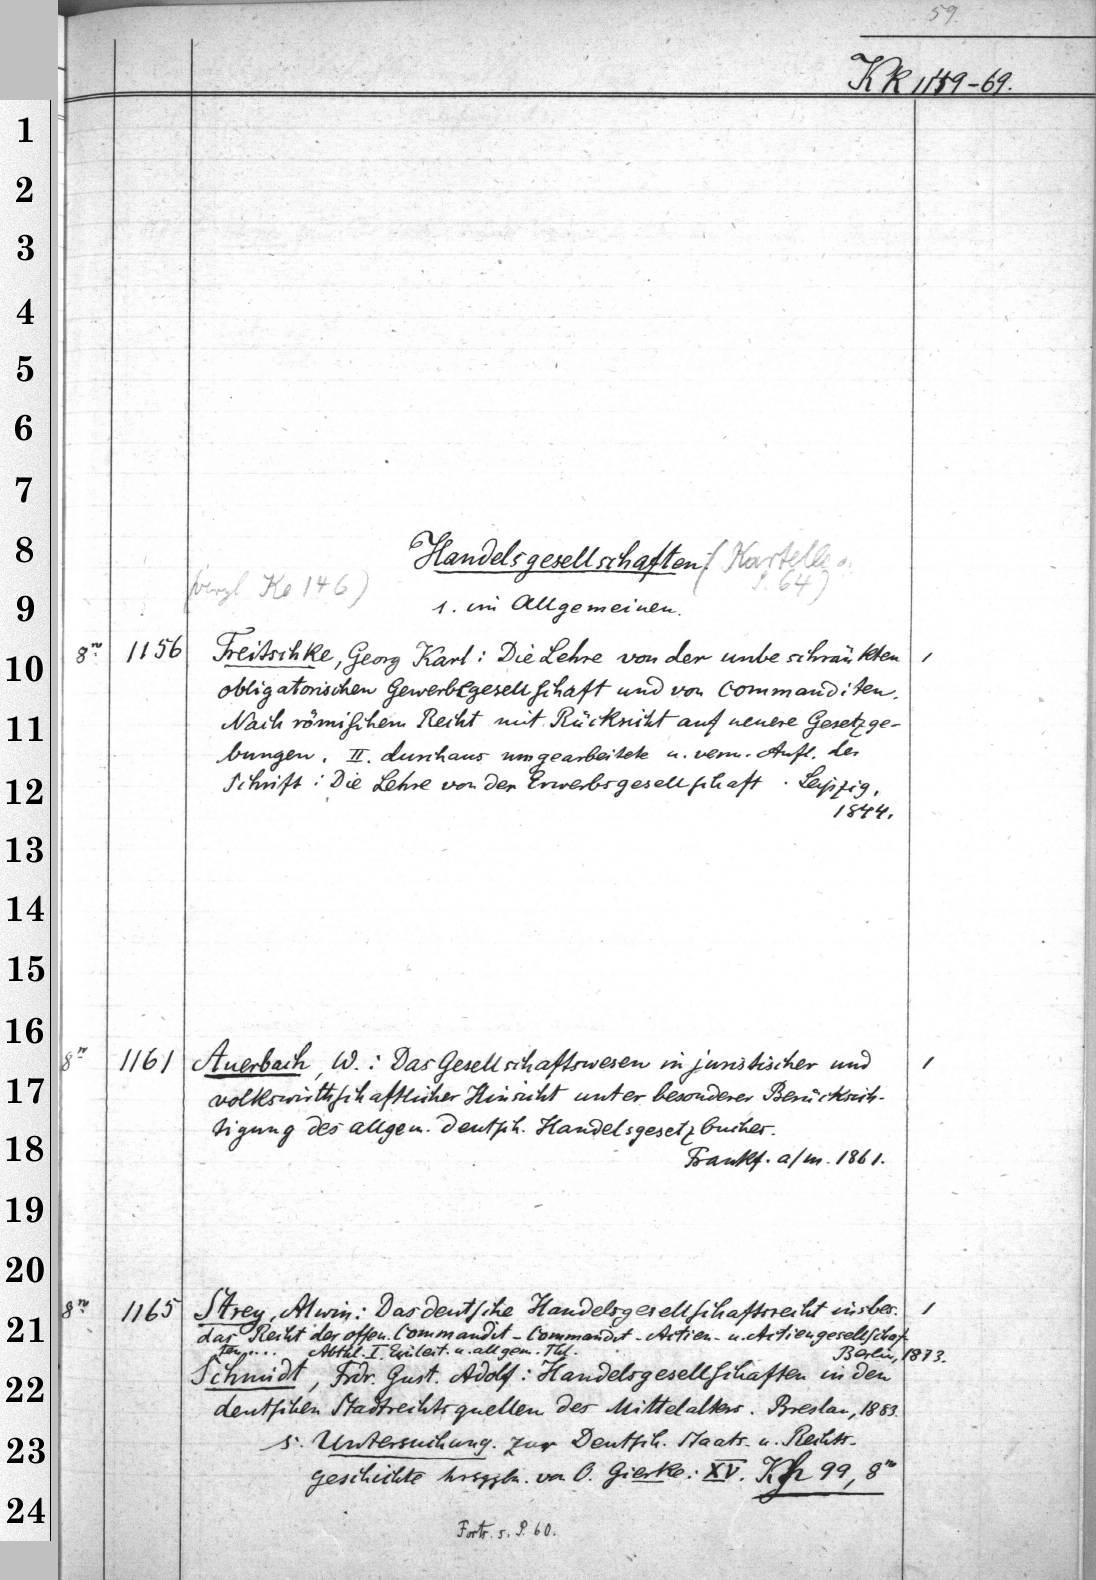 59.
KK 1159-69.
1
2
3
4
5
6
7
8
9
10
11
12
13
14
15
16
17
18
19
20
21
22
23
24
Handelsgesellschaften. (Kartelle
S. 64)
(vergl Ke 146)
1. im Allgemeinen.
8ᵛᵒ 1156 Treitschke, Georg Karl: Die Lehre von der unbeschränkten 1
obligatorischen Gewerbsgesellschaft und von Commanditen.
Nach römischem Recht mit Rücksicht auf neuere Gesetzge-
bungen. II. durchaus umgearbeitete u. verm. Aufl. der
Schrift: Die Lehre von der Erwerbsgesellschaft. Leipzig,
1844.
8ᵛᵒ 1161 Auerbach, W.: Das Gesellschaftswesen in juristischer und 1
volkswirthschaftlicher Hinsicht unter besonderer Berücksich-
tigung des allgem. deutsch. Handelsgesetzbuches.
Frankf. a/m. 1861.
8ᵛᵒ 1165 Strey, Alwin: Das deutsche Handelsgesellschaftsrecht insbes. 1
das Recht der offen. Commandit-Commandit-Actien- u. Actiengesellschaf-
ten.... Abthl. I Einleit. u. allgem. Thl. Berlin, 1873.
Schmidt, Frdr. Gust. Adolf: Handelsgesellschaften in den
deutschen Stadtrechtsquellen des Mittelalters. Breslau, 1883.
s. Untersuchung. zur Deutsch. Staats- u. Rechts-
geschichte hrsggbn. von O. Gierke: XV. 99, 8ᵛᵒ
Forts. s. S. 60.